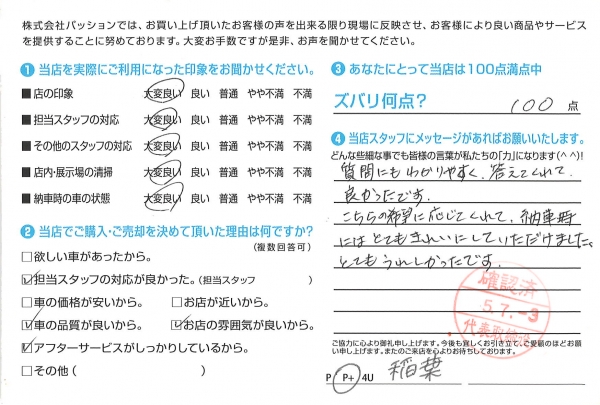 株式会社パッションでは、お買い上げ頂いたお客様の声を出来る限り現場に反映させ、お客様により良い商品やサービス
を提供することに努めております。大変お手数ですが是非、お声を聞かせてください。
❶ 当店を実際にご利用になった印象をお聞かせください。
■ 店の印象 大変良い 良い 普通 やや不満 不満
■ 担当スタッフの対応 大変良い 良い 普通 やや不満 不満
■ その他のスタッフの対応 大変良い 良い 普通 やや不満 不満
■ 店内・展示場の清掃 大変良い 良い 普通 やや不満 不満
■ 納車時の車の状態 大変良い 良い 普通 やや不満 不満
❷ 当店でご購入・ご売却を決めて頂いた理由は何ですか?
(複数回答可)
□欲しい車があったから。
☑担当スタッフの対応が良かった。(担当スタッフ )
□車の価格が安いから。 □お店が近いから。
☑車の品質が良いから。 ☑お店の雰囲気が良いから。
☑アフターサービスがしっかりしているから。
□その他( )
❸ あなたにとって当店は100点満点中
ズバリ何点? 100 点
❹ 当店スタッフにメッセージがあればお願いいたします。
どんな些細な事でも皆様の言葉が私たちの「力」になります(^^)!
質問にもわかりやすく、答えてくれて
良かったです。
こちらの希望に応じてくれて、納車時
にはとてもきれいにしていただけました。
とてもうれしかったです。
確認済
5.7.-3
代表取締役
ご協力に心より御礼申し上げます。今後も宜しくお引き立て、ご愛顧のほどお願
い申し上げます。またのご来店を心よりお待ちしております。
P P+ 4U 稲葉